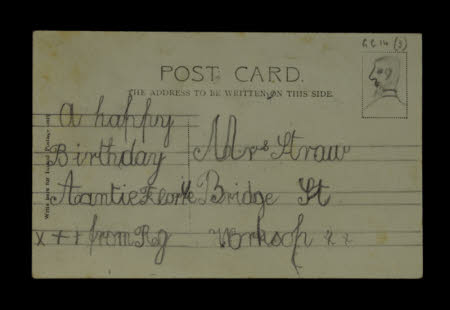 GC14 (3)
POST CARD.
THE ADDRESS TO BE WRITTEN ON THIS SIDE.
A happy
Birthday
Auntie
x + + from Reg
Mrs Straw
Bridge St
Worksop x x